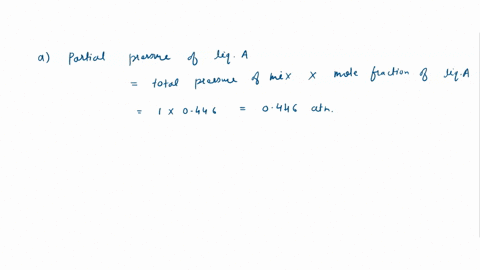 a) Partial pressure of liq. A
= total pressure of mix x mole fraction of liq. A
= 1 x 0.446 = 0.446 atm.